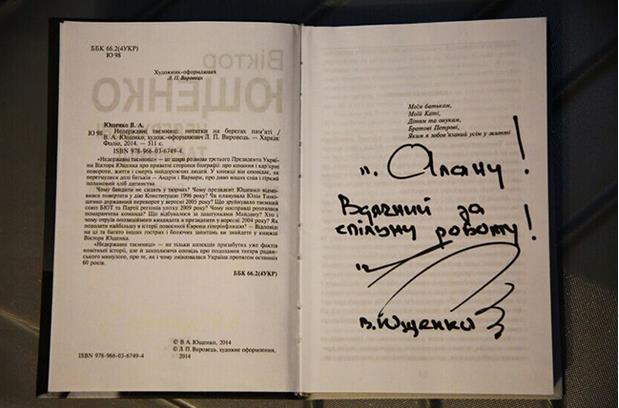 ББК 66.2(4УКР)
Ю 98
Художник-оформлювач
Л. П. Вировець
Ющенко В. А.
Ю 98 Недержавні таємниці: нотатки на берегах пам’яті /
В. А. Ющенко; худож.-оформлювач Л. П. Вировець. — Харків:
Фоліо, 2014. — 511 с.
ISBN 978-966-03-6749-4.
«Недержавні таємниці» — це щира розмова третього Президента Украї-
ни Віктора Ющенка про приватні сторінки біографії: про кохання і кар’єрні
повороти, життя і смерть найдорожчих людей. У книжці він оповідає, як
перетнулися долі батьків — Андрія і Варвари, про диво віщих снів і гіркий
полиновий хліб дитинства.
Чому бандити не сидять у тюрмах? Чому президент Ющенко відмо-
вився повертати у дію Конституцію 1996 року? Як планувала Юлія Тимо-
шенко державний переворот у вересні 2005 року? Що зруйнувало таємний
союз БЮТ та Партії регіонів улітку 2009 року? Чому насправді розпалася
помаранчева команда? Що відбувалося за лаштунками Майдану? Хто і
чому отруїв опозиційного кандидата в президенти у вересні 2004 року? Як
подолати найбільшу в історії повоєнної Європи гіперінфляцію? — Відповіді
на ці та багато інших гострих і болючих запитань ви знайдете у книжці
Віктора Ющенка.
«Недержавні таємниці» — не тільки колекція призабутих уже фактів
новітньої історії, але й захоплююча оповідь про подолання тягаря радян-
ського минулого, про те, як і чому змінювалася Україна протягом останніх
60 років.
ББК 66.2(4УКР)
© В. А. Ющенко, 2014
© Л. П. Вировець, художнє оформлення,
2014
ISBN 978-966-03-6749-4
Моїм батькам,
Моїй Каті,
Дітям та онукам,
Братові Петрові,
Яким я зобов’язаний усім у житті
п. Алану!
Вдячний за
спільну роботу!
В. Ющенко